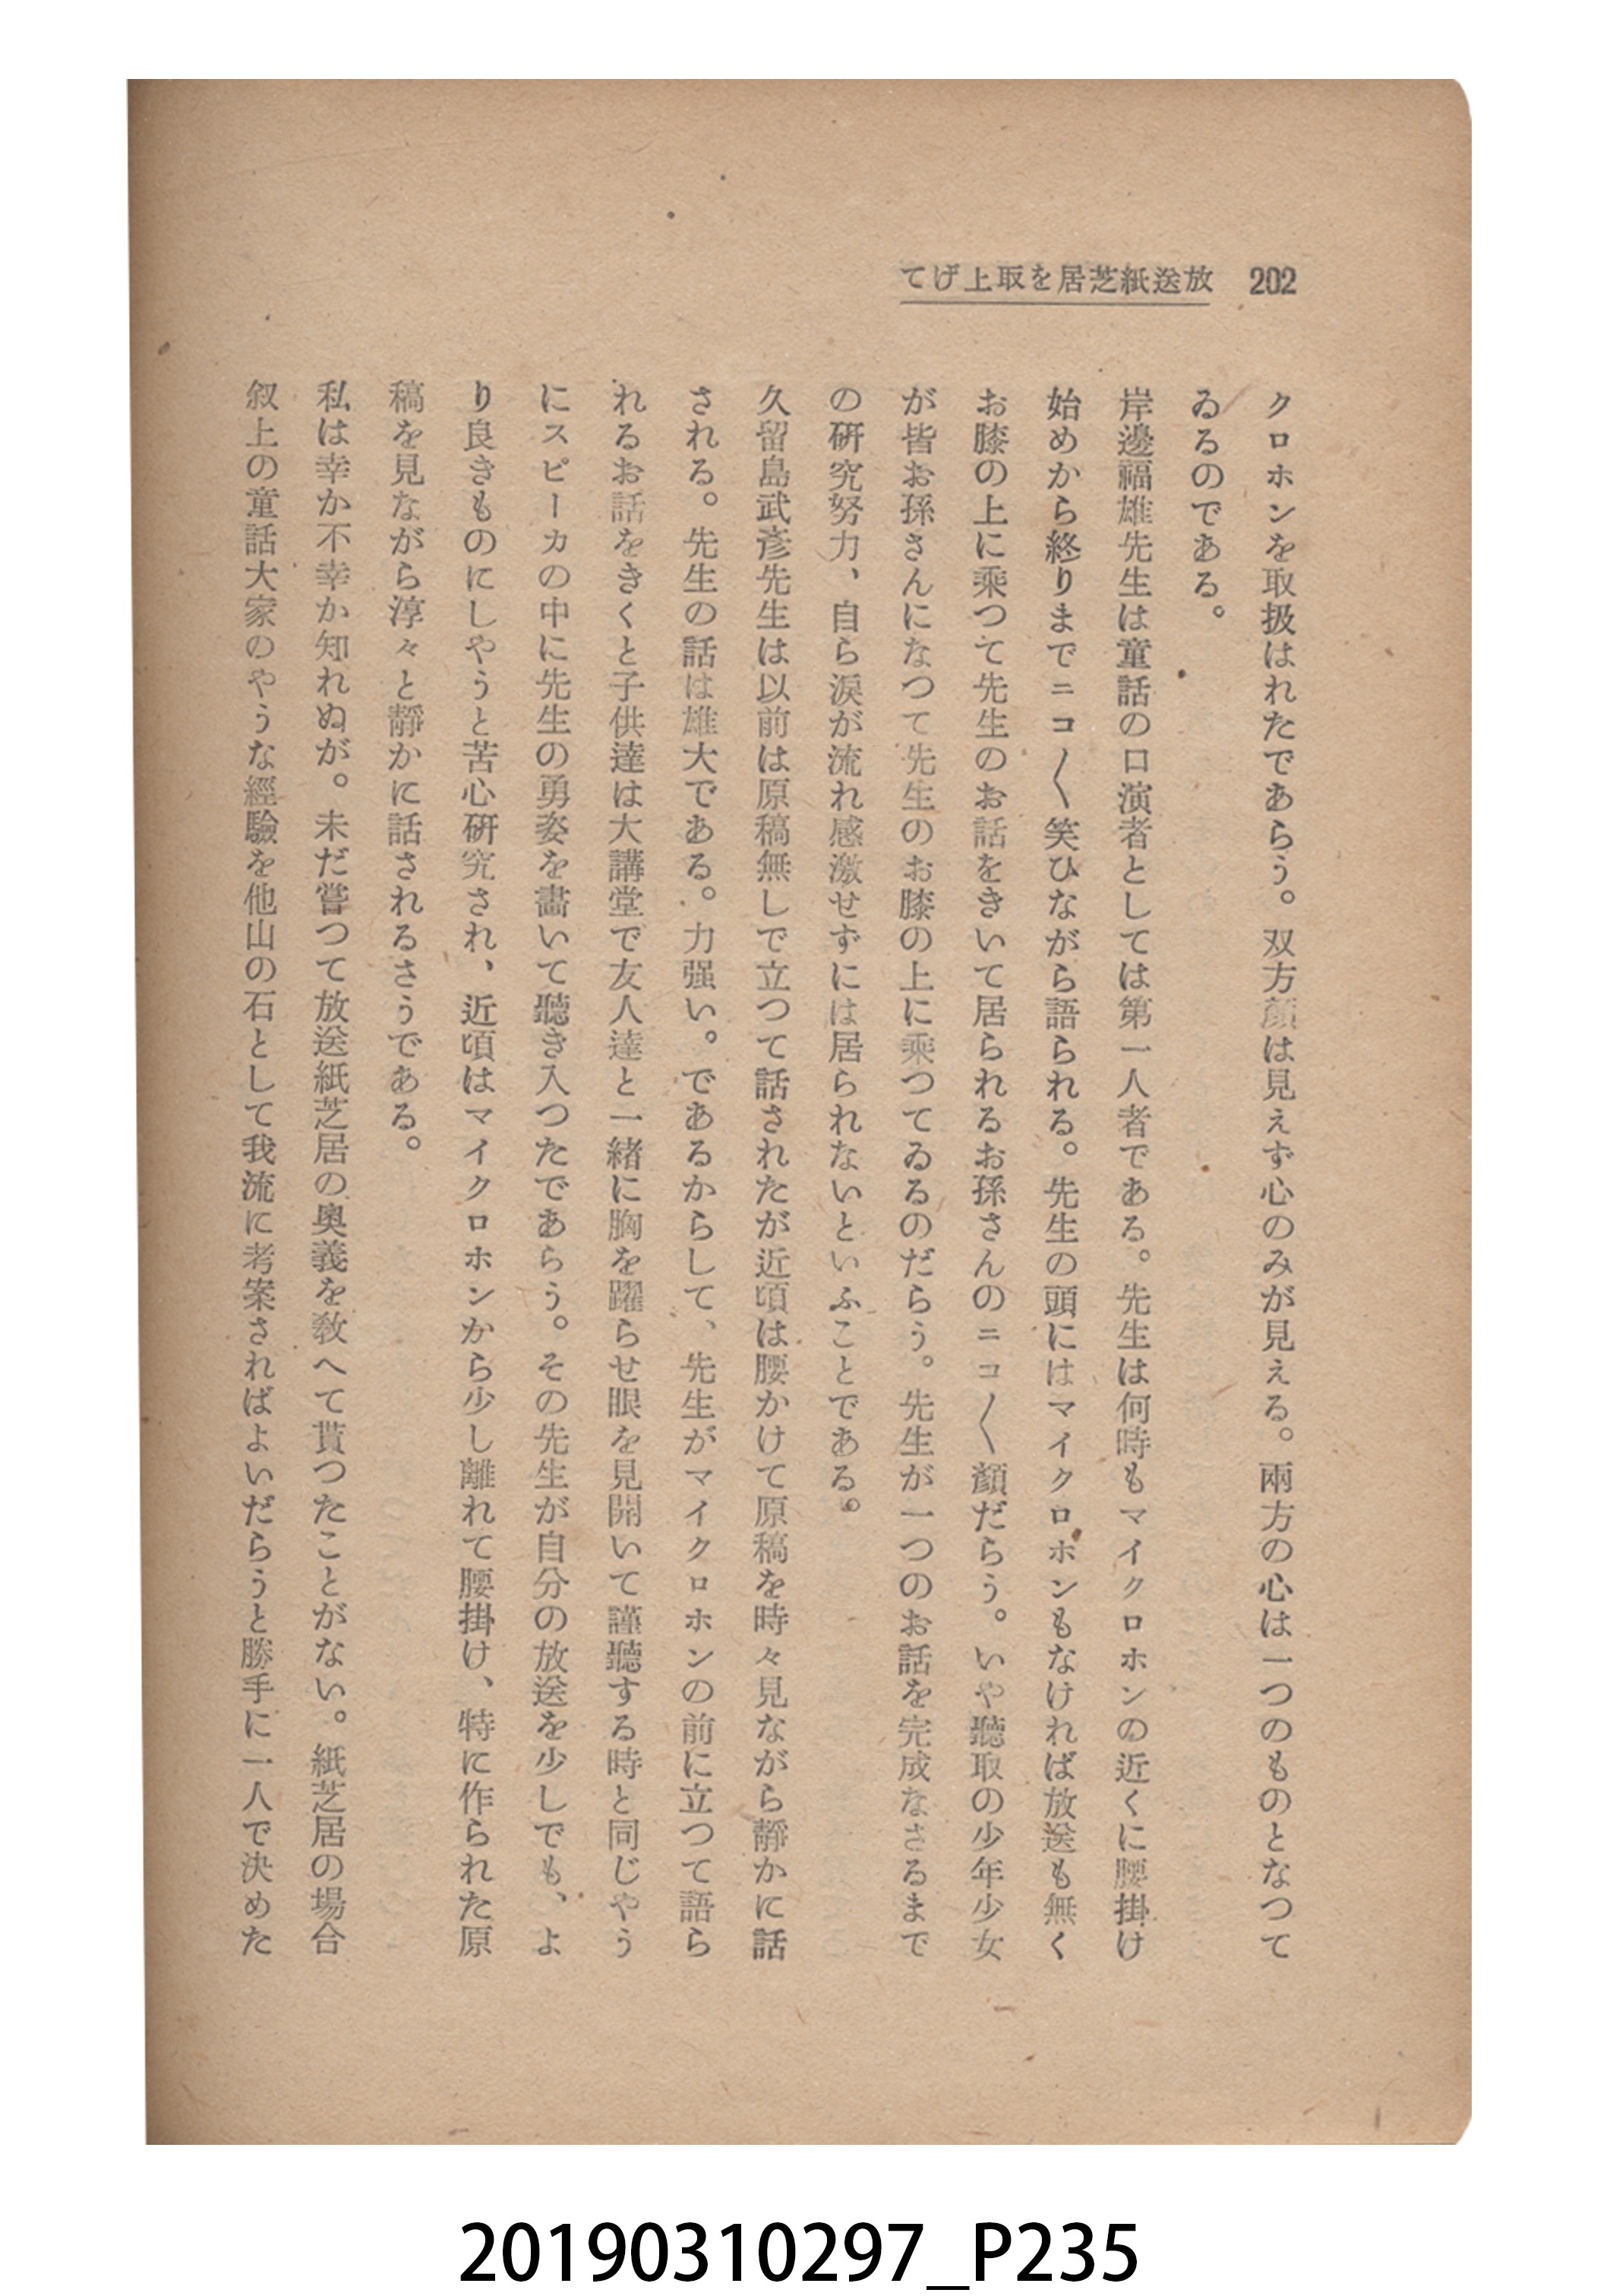 202 放送紙芝居を取上げて
クロホンを取扱はれたであらう。双方顔は見えず心のみが見える。兩方の心は一つのものとなつて
ゐるのである。
岸邊福雄先生は童話の口演者としては第一人者である。先生は何時もマイクロホンの近くに腰掛け
始めから終りまでニコ〱笑ひながら語られる。先生の頭にはマイクロホンもなければ放送も無く
お膝の上に乘つて先生のお話をきいて居られるお孫さんのニコ〱顏だらう。いや聽取の少年少女
が皆お孫さんになつて先生のお膝の上に乘つてゐるのだらう。先生が一つのお話を完成なさるまで
の硏究努力、自ら淚が流れ感激せずには居られないといふことである。
久留島武彥先生は以前は原稿無しで立つて話されたが近頃は腰かけて原稿を時々見ながら靜かに話
される。先生の話は雄大である。力强い。であるからして、先生がマイクロホンの前に立つて語ら
れるお話をきくと子供達は大講堂で友人達と一緖に胸を躍らせ眼を見開いて謹聽する時と同じやう
にスピーカの中に先生の勇姿を畵いて聽き入つたであらう。その先生が自分の放送を少しでも、よ
り良きものにしやうと苦心硏究され、近頃はマイクロホンから少し離れて腰掛け、特に作られた原
稿を見ながら淳々と靜かに話されるさうである。
私は幸か不幸か知れぬが。未だ嘗つて放送紙芝居の奧義を敎へて貰つたことがない。紙芝居の場合
叙上の童話大家のやうな經驗を他山の石として我流に考案さればよいだらうと勝手に一人で決めた
20190310297_P235